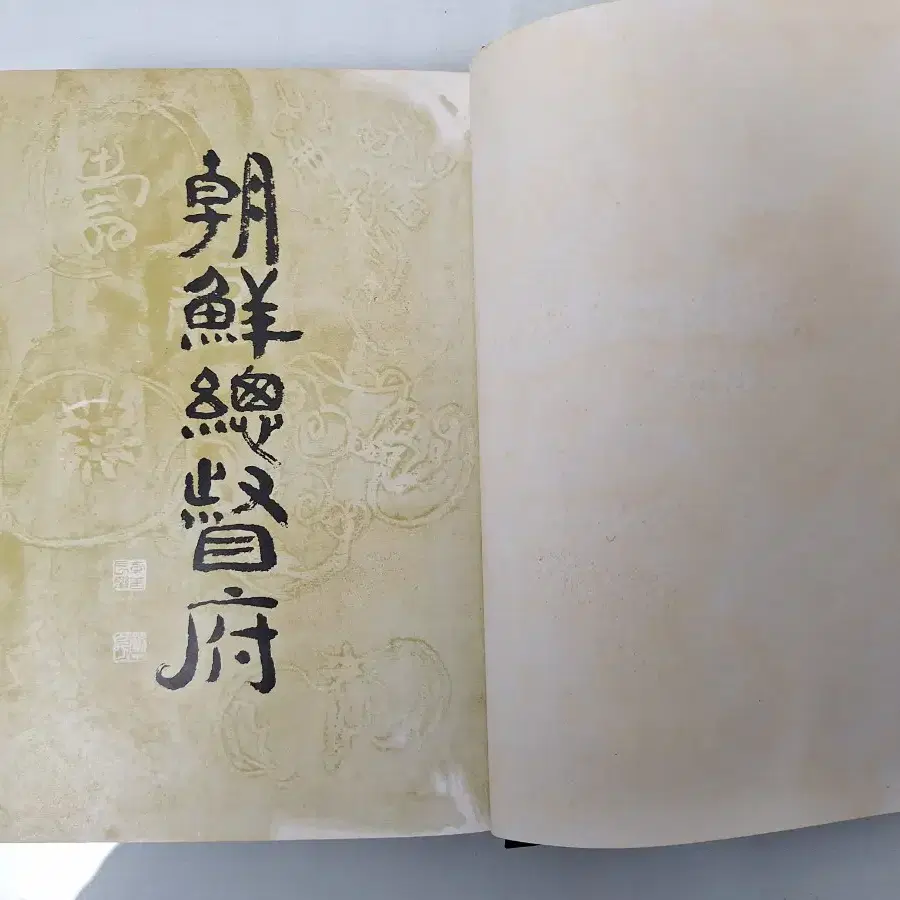 朝鮮總督府